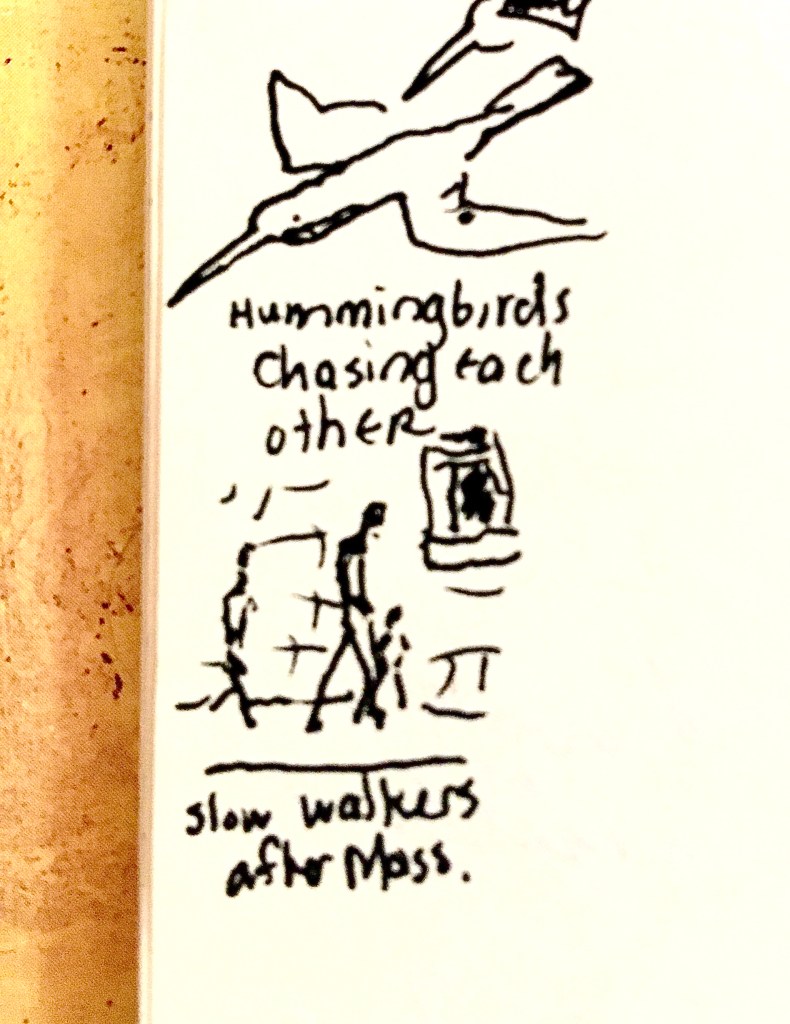 Hummingbirds
chasing each
other
slow walkers
after Mass.